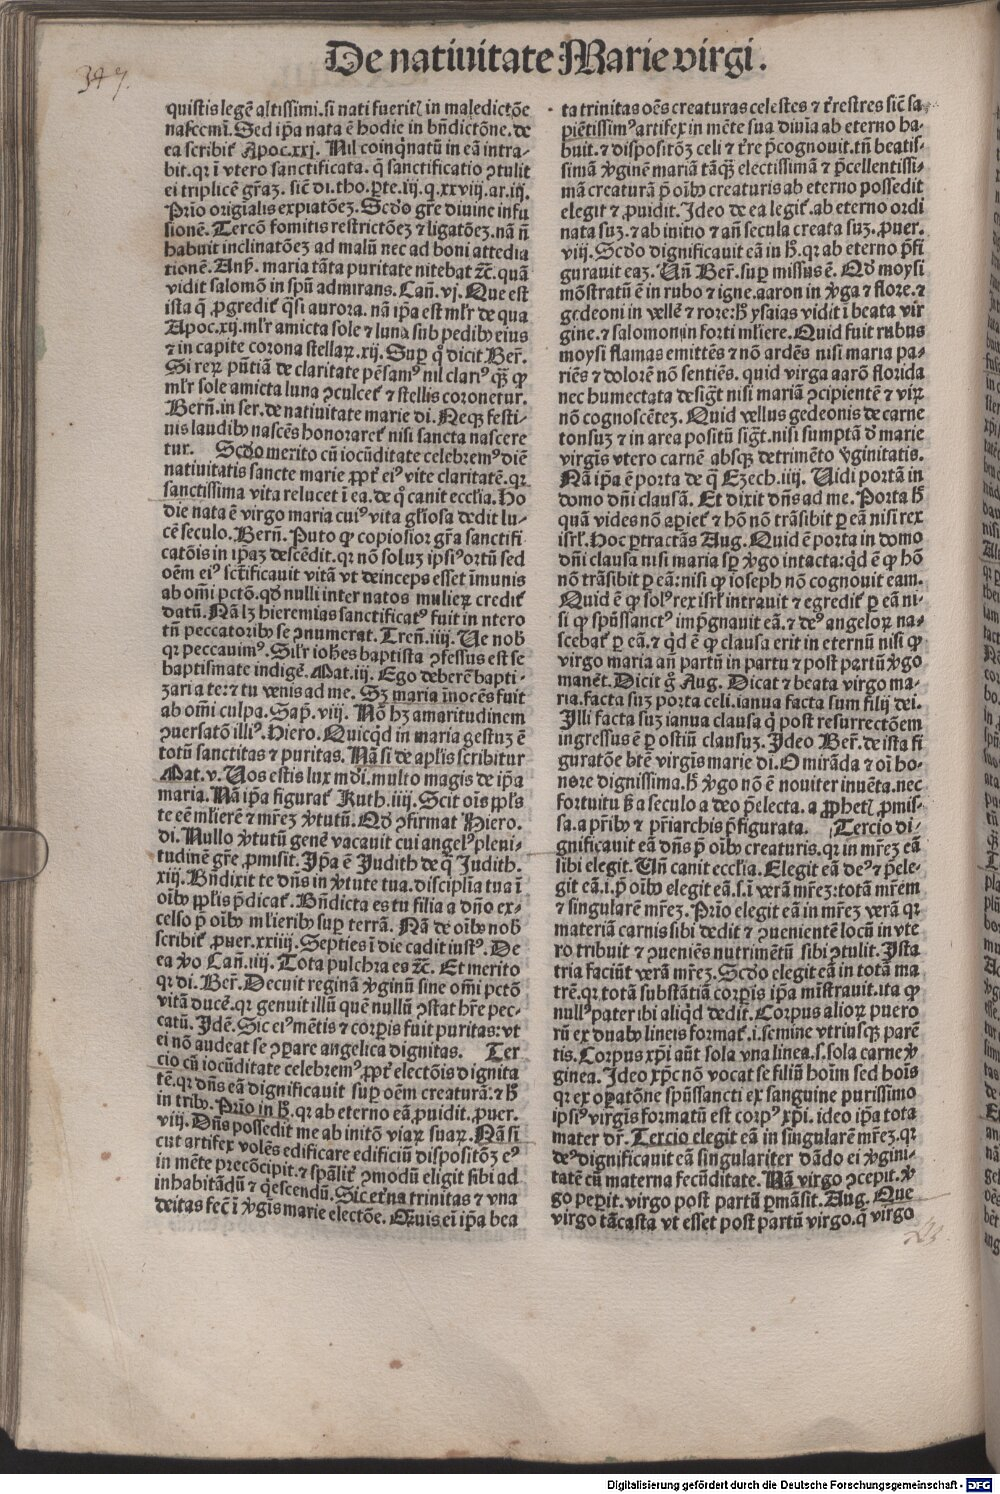 De natiuitate Marie virgi.
347.
quistis legē altissimi. si nati fueritꝭ in maledictōe
nascemī. Sed ip̄a nata ē hodie in bn̄dictōne. de
ea scribit᷑ Apoc. xxj. Nil coinq̄natū in eā intra-
bit. qꝛ ī vtero sanctificata. q̄ sanctificatio ꝯtulit
ei triplicē gr̄az. sic̄ di. tho. ꝑte. iij. q. xxviij. ar. iij.
Prīo origīalis expiatōez. Scd̓o gr̄e diuine infu
sionē. Tercō fomitis restrictōez ⁊ ligatōez. nā n̄
habuit inclinatōez ad malū nec ad boni attedia
tionē. Anß. maria tāta puritate nitebat ⁊c̄. quā
vidit salomō in spū admirans. Cañ. vj. Que est
ista q̄ ꝓgredit᷑ q̄si aurora. nā ip̄a est ml̓r de qua
Apoc. xij. ml̓r amicta sole ⁊ luna sub pedibꝰ eius
⁊ in capite corona stellaꝝ. xij. Suꝑ qͦ dicit Ber̄.
Si reꝝ pn̄tiā de claritate pēsamꝰ nil clariꝰ qͣꝫ ꝙ
ml̓r sole amicta luna ꝯculcet᷑ ⁊ stellis coronetur.
Berñ. in ser. de natiuitate marie di. Neqꝫ festi-
uis laudibꝰ nascēs honoraret᷑ nisi sancta nascere
tur. Scd̓o merito cū iocūditate celebremꝰ diē
natiuitatis sancte marie ꝓpt̓ eiꝰ vite claritatē. qꝛ
sanctissima vita relucet ī ea. de qͣ canit eccl̓ia. Ho
die nata ē virgo maria cuiꝰ vita gl̓iosa dedit lu-
cē seculo. Berñ. Puto ꝙ copiosior gr̄a sanctifi
catōis in ip̄az descēdit. qꝛ nō soluz ipsiꝰ ortū sed
oēm eiꝰ sct̄ificauit vitā vt deinceps esset īmunis
ab om̄i pctō. qd̓ nulli inter natos mulieꝝ credit᷑
datū. Nā lꝫ hieremias sanctificatꝰ fuit in vtero
tn̄ peccatoribꝰ se ꝯnumerat. Tren̄. iiij. Ue nob̄
qꝛ peccauimꝰ. Sil̓r ioh̄es baptista ꝯfessus est se
baptismate indigē. Mat. iij. Ego deberē bapti-
zari a te: ⁊ tu venis ad me. Sꝫ maria īnocēs fuit
ab om̄i culpa. Sap̄. viij. Nō hꝫ amaritudinem
ꝯuersatō illiꝰ. Hiero. Quicqͥd in maria gestuz ē
totū sanctitas ⁊ puritas. Nā si de apl̓is scribitur
Mat. v. Uos estis lux mūdi. multo magis de ip̄a
maria. Nā ip̄a figurat᷑ Ruth. iiij. Scit ois ppl̓s
te eē ml̓ierē ⁊ mr̄ez v̓tutū. Qd̓ ꝯfirmat Hiero.
di. Nullo v̓tutū genē vacauit cui angelꝰ pleni-
tudinē gr̄e ꝓmisit. Ip̄a ē Judith de qͣ Judith.
xiij. Bn̄dixit te dn̄s in v̓tute tua. disciplīa tua ī
oībꝰ ppl̓is p̄dicat᷑. Bn̄dicta es tu filia a dn̄o ex-
celso p̄ oībꝰ ml̓ieribꝰ suꝑ terrā. Nā de oībꝰ nob̄
scribit᷑ ꝓuer. xxiiij. Septies ī die cadit iustꝰ. De
ea v̓o Cañ. iiij. Tota pulchra es ⁊c̄. Et merito
qꝛ di. Ber̄. Decuit reginā v̓ginū sine om̄i pctō
vitā ducē. qꝛ genuit illū quē nullū ꝯstat hr̄e pec-
catū. Idē. Sic eiꝰ mētis ⁊ corꝑis fuit puritas: vt
ei nō audeat se ꝯꝑare angelica dignitas. Ter
cio cū iocūditate celebremꝰ ꝓpt̓ electōis dignita
tē. qꝛ dn̄s eā dignificauit suꝑ oēm creaturā: ⁊ h̄
in tribꝰ. Prīo in h̄. qꝛ ab eterno eā ꝓuidit. ꝓuer.
viij. Dn̄s possedit me ab initō viaꝝ suaꝝ. Nā si
cut artifex volēs edificare edificiū dispositōz eꝰ
in mēte precōcipit. ⁊ spāl̓it᷑ ꝯmodū eligit sibi ad
inhabitādū ⁊ qͥescendū. Sic et̓na trinitas ⁊ vna
deitas fec̄ ī v̓gīs marie electōe. Qͣuis eī ip̄a bea
ta trinitas oēs creaturas celestes ⁊ tr̄restres sic̄ sa
piētissimꝰ artifex in mēte sua diuīa ab eterno ha-
buit. ⁊ dispositōꝫ celi ⁊ tr̄e p̄cognouit. tn̄ beatis-
simā v̓ginē mariā tāqͣꝫ electissimā ⁊ p̄cellentissi-
mā creaturā p̄ oībꝰ creaturis ab eterno possedit
elegit ⁊ ꝓuidit. Ideo de ea legit᷑. ab eterno ordi
nata suꝫ. ⁊ ab initio ⁊ an̄ secula creata suꝫ. ꝓuer.
viij. Scd̓o dignificauit eā in h̄. qꝛ ab eterno p̄fi
gurauit eaꝫ. Un̄ Ber̄. suꝑ missus ē. Qd̓ moysi
mōstratū ē in rubo ⁊ igne. aaron in v̓ga ⁊ flore. ⁊
gedeoni in vellē ⁊ rore: h̄ ysaias vidit ī beata vir
gine. ⁊ salomon in forti ml̓iere. Quid fuit rubus
moysi flamas emittēs ⁊ nō ardēs nisi maria pa-
riēs ⁊ dolorē nō sentiēs. quid virga aarō florida
nec humectata desigt̄ nisi mariā ꝯcipientē ⁊ viꝝ
nō cognoscētez. Quid vellus gedeonis de carne
tonsuꝫ ⁊ in area positū sigt̄. nisi sumptā d̓ marie
virgīs vtero carnē absqꝫ detrimēto v̓ginitatis.
Nā ip̄a ē porta de qͣ Ezech. iiij. Uidi portā in
domo dn̄i clausā. Et dixit dn̄s ad me. Porta h̄
quā vides nō aꝑiet᷑ ⁊ hō nō trāsibit ꝑ eā nisi rex
isrl̓. Hoc ꝑtractās Aug. Quid ē porta in domo
dn̄i clausa nisi maria sꝑ v̓go intacta: qͥd ē ꝙ hō
nō trāsibit ꝑ eā: nisi ꝙ ioseph nō cognouit eam.
Quid ē ꝙ solꝰ rex isrl̓ intrauit ⁊ egredit᷑ ꝑ eā ni-
si ꝙ spūssanctꝰ imp̄gnauit eā. ⁊ deꝰ angeloꝝ na-
scebat᷑ ꝑ eā. ⁊ qͥd ē ꝙ clausa erit in eternū nisi ꝙ
virgo maria an̄ partū in partu ⁊ post partū v̓go
manēt. Dicit gͦ Aug. Dicat ⁊ beata virgo ma-
ria. facta suꝫ porta celi. ianua facta sum filij dei.
Illi facta suꝫ ianua clausa qͥ post resurrectōem
ingressus ē ꝑ ostiū clausuꝫ. Ideo Ber̄. de ista fi
guratōe bt̄e virgīs marie di. O mirāda ⁊ oī ho-
nore dignissima. h̄ v̓go nō ē nouiter inuēta. nec
fortuitu ß a seculo a deo p̄electa. a ꝓphetꝭ ꝓmis-
sa. a pr̄ibꝰ ⁊ pr̄iarchis p̄figurata. Tercio di-
gnificauit eā dn̄s p̄ oībꝰ creaturis. qꝛ in mr̄ez eā
sibi elegit. Un̄ canit eccl̓ia. Elegit eā deꝰ ⁊ p̄ele-
git eā. i. p̄ oībꝰ elegit eā. s. ī verā mr̄ez: totā mr̄em
⁊ singularē mr̄ez. Prīo elegit eā in mr̄ez verā qꝛ
materiā carnis sibi dedit ⁊ ꝯuenientē locū in vte
ro tribuit ⁊ ꝯueniēs nutrimētū sibi ꝯtulit. Ista
tria faciūt verā mr̄ez. Scd̓o elegit eā in totā ma
trē. qꝛ totā substātiā corꝑis ip̄a mīstrauit. ita ꝙ
nullꝰ pater ibi aliqͥd dedit. Corpus alioꝝ puero
rū ex duabꝰ lineis format᷑. i. semine vtriusqꝫ parē
tis. Corpus xp̄i aūt sola vna linea. s. sola carne v̓
ginea. Ideo xp̄c nō vocat se filiū hoīm sed hoīs
qꝛ ex oꝑatōne spūssancti ex sanguine purissimo
ipsiꝰ virgīs formatū est corpꝰ xp̄i. ideo ip̄a tota
mater dr̄. Tercio elegit eā in singularē mr̄ez. qꝛ
deꝰ dignificauit eā singulariter dādo ei v̓gini-
tatē cū materna fecūditate. Nā virgo ꝯcepit. v̓
go peꝑit. virgo post partū ꝑmāsit. Aug. Que
virgo tā casta vt esset post partū virgo. qͣ virgo
Digitalisierung gefördert durch die Deutsche Forschungsgemeinschaft - DFG